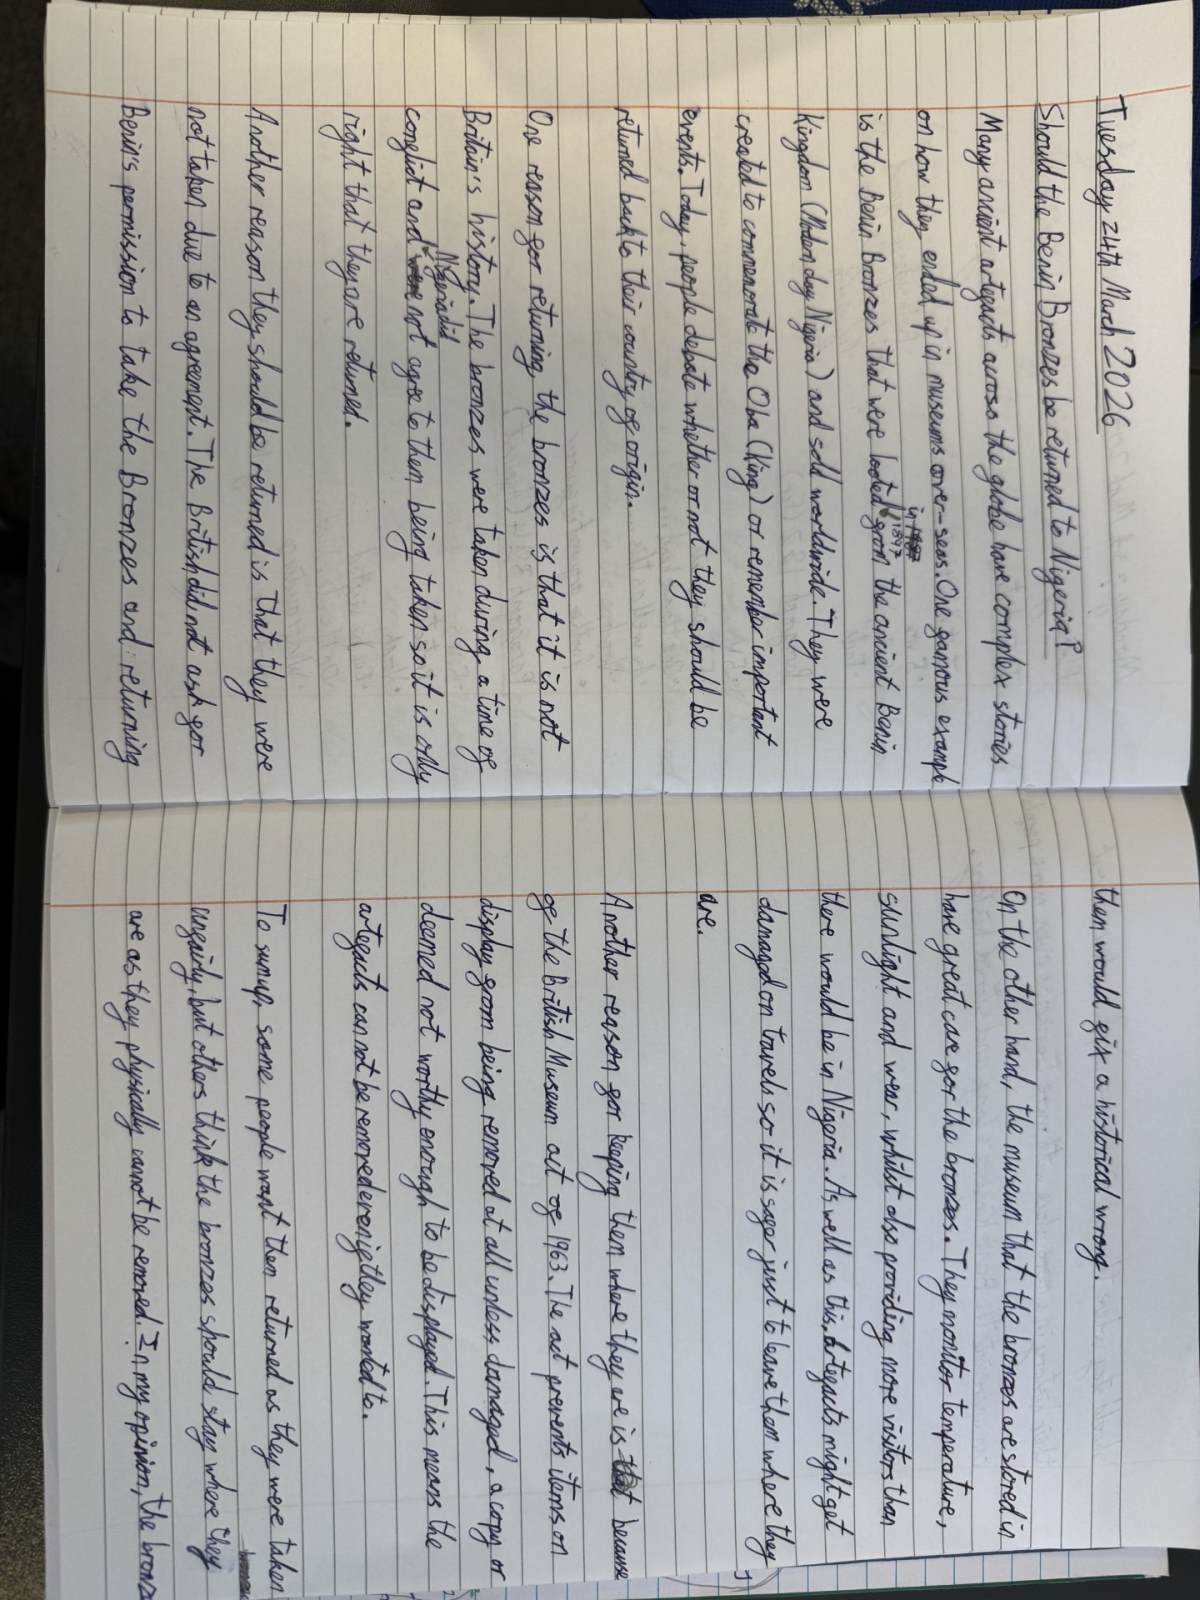 Tuesday 24th March 2026
Should the Benin Bronzes be returned to Nigeria?
Many ancient artefacts across the globe have complex stories
on how they ended up in museums over-seas. One famous example
is the Benin Bronzes that were looted in 1897 from the ancient Benin
Kingdom (Modern day Nigeria) and sold worldwide. They were
created to commemorate the Oba (King) or remember important
events. Today, people debate whether or not they should be
returned back to their country of origin.
One reason for returning the bronzes is that it is not
Britain's history. The bronzes were taken during a time of
conflict and Nigeria did not agree to them being taken so it is only
right that they are returned.
Another reason they should be returned is that they were
not taken due to an agrement. The British did not ask for
Benin's permission to take the Bronzes and returning
them would fix a historical wrong.
On the other hand, the museum that the bronzes are stored in
have great care for the bronzes. They monitor temperature,
sunlight and wear, whilst also providing more visitors than
there would be in Nigeria. As well as this, artefacts might get
damaged on travels so it is safer just to leave them where they
are.
Another reason for keeping them where they are is because
of the British Museum act of 1963. The act prevents items on
display from being removed at all unless damaged, a copy or
deemed not worthy enough to be displayed. This means the
artefacts can not be removed even if they wanted to.
To sum up, some people want them returned as they were taken
unfairly, but others think the bronzes should stay where they
are as they physically cannot be removed. In my opinion, the